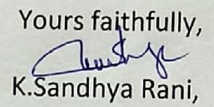 Yours faithfully,
K.Sandhya Rani,